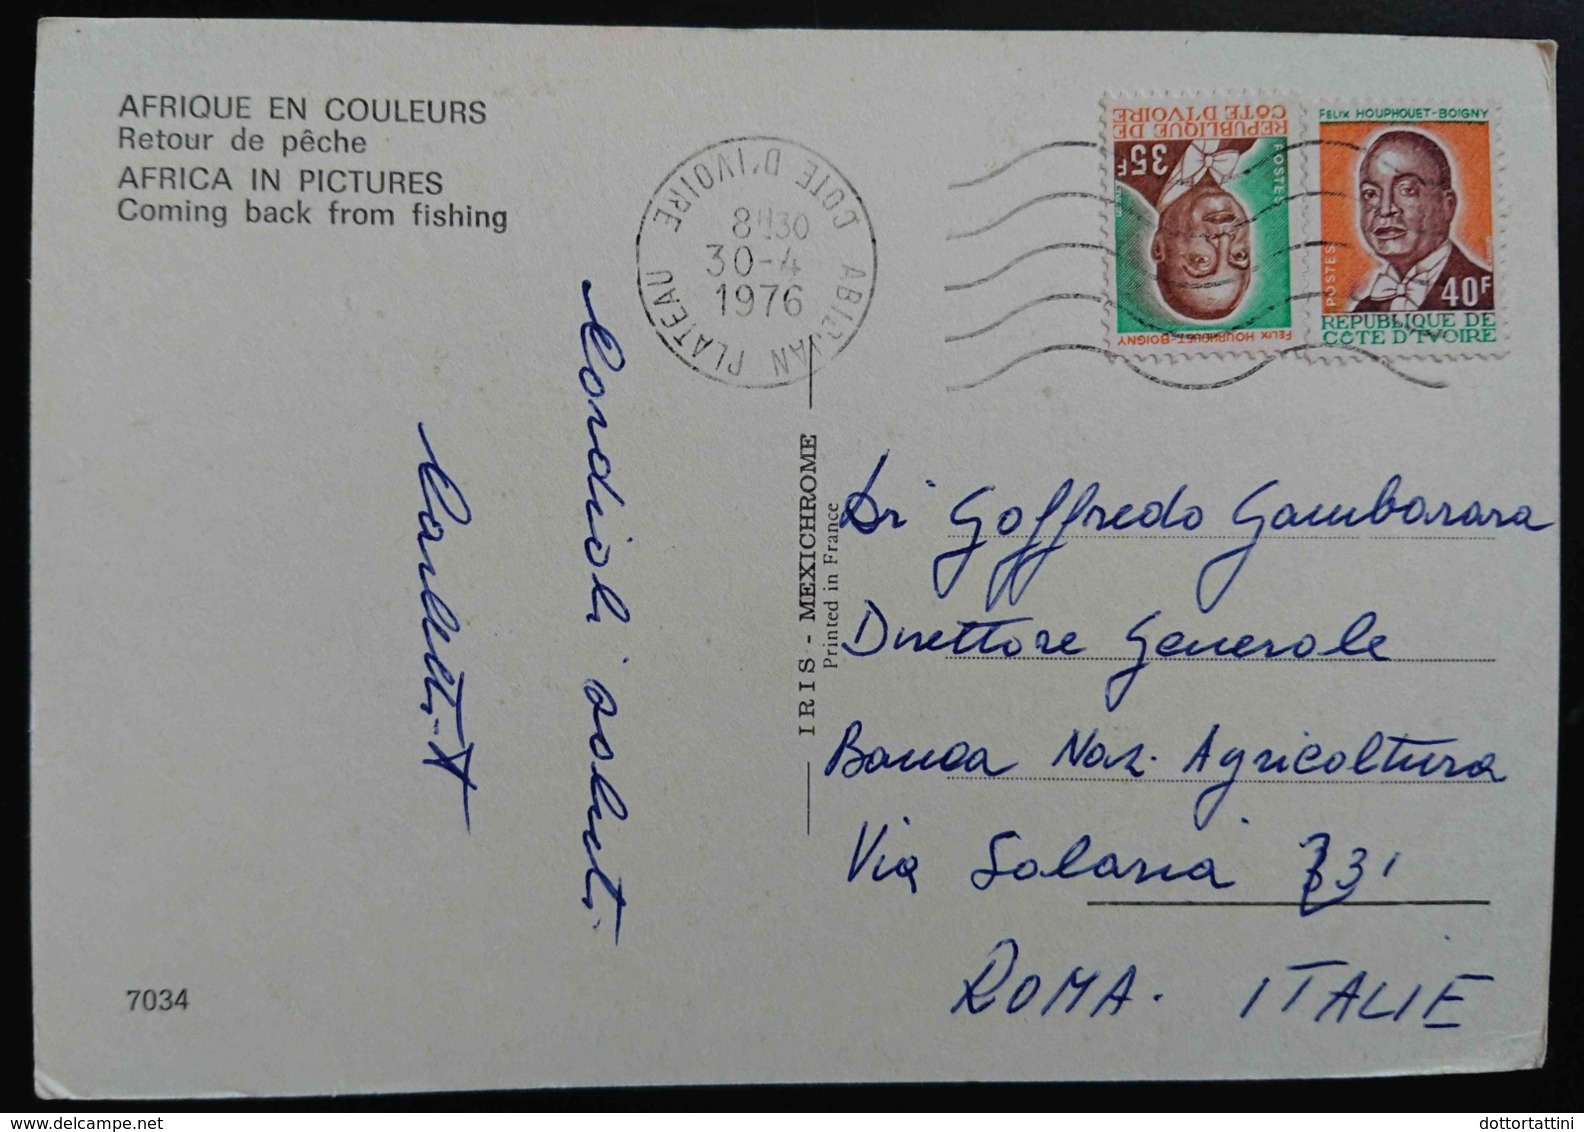 AFRIQUE EN COULEURS
Retour de pêche
AFRICA IN PICTURES
Coming back from fishing
COTE D'IVOIRE
8H30
30-4
1976
ABIDJAN PLATEAU
REPUBLIQUE DE
CÔTE D'IVOIRE
35F
POSTES
FELIX HOUPHOUET-BOIGNY
FELIX HOUPHOUET-BOIGNY
POSTES
40F
REPUBLIQUE DE
CÔTE D'IVOIRE
Cordiali saluti
IRIS - MEXICHROME
Printed in France
Dr Goffredo Gambarara
Direttore Generale
Banca Naz. Agricoltura
Via Salaria
ROMA. ITALIE
7034
dottortattini